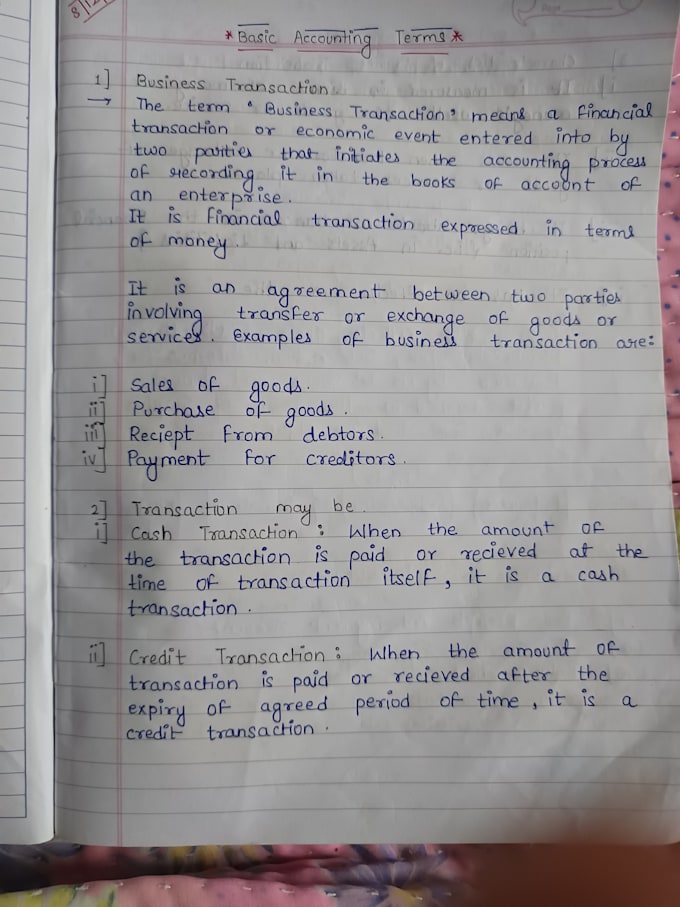 * Basic Accounting Terms *
1] Business Transaction
→ The term " Business Transaction" means a financial
transaction or economic event entered into by
two parties that initiates the accounting process
of recording it in the books of account of
an enterprise.
It is financial transaction expressed in terms
of money.
It is an agreement between two parties
involving transfer or exchange of goods or
services. Examples of business transaction are:
i] Sales of goods.
ii] Purchase of goods.
iii] Reciept from debtors.
iv] Payment for creditors.
2] Transaction may be.
i] Cash Transaction : When the amount of
the transaction is paid or recieved at the
time of transaction itself, it is a cash
transaction.
ii] Credit Transaction : When the amount of
transaction is paid or recieved after the
expiry of agreed period of time, it is a
credit transaction.